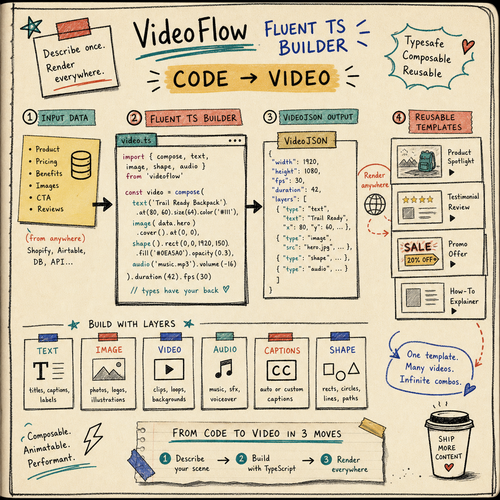 Describe once.
Render
everywhere.
VideoFlow
FLUENT TS
BUILDER
CODE → VIDEO
Typesafe
Composable
Reusable
1 INPUT DATA
• Product
• Pricing
• Benefits
• Images
• CTA
• Reviews
(from anywhere)
Shopify, Airtable,
DB, API...
2 FLUENT TS BUILDER
video.ts
import { compose, text,
image, shape, audio }
from 'videoflow'
const video = compose(
text('Trail Ready Backpack').
.at(80, 60).size(64).color('#111').
image(data.hero)
.cover().at(0,0),
shape().rect(0,0,1920,150)
.fill('#0EA5A0').opacity(0.3),
audio('music.mp3').volume(-16)
).duration(42).fps(30)
// types have your back
3 VIDEOJSON OUTPUT
VideoJSON
{
"width": 1920,
"height": 1080,
"fps": 30,
"duration": 42,
"layers": [
{ "type": "text",
"text": "Trail Ready",
"x": 80, "y": 60, ... },
{ "type": "image",
"src": "hero.jpg", ... },
{ "type": "shape", ... },
{ "type": "audio", ... }
]
}
Render
anywhere
4 REUSABLE
TEMPLATES
Product
Spotlight
Testimonial
Review
SALE
20% OFF
Promo
Offer
How-To
Explainer
BUILD WITH LAYERS
TEXT
T
titles, captions,
labels
IMAGE
photos, logos,
illustrations
VIDEO
clips, loops,
backgrounds
AUDIO
music, sfx,
voiceover
CAPTIONS
CC
auto or custom
captions
SHAPE
rects, circles,
lines, paths
One template.
Many videos.
Infinite combos.
Composable.
Animatable.
Performant.
FROM CODE TO VIDEO IN 3 MOVES
1 Describe
your scene
2 Build
with TypeScript
3 Render
everywhere
SHIP
MORE
CONTENT